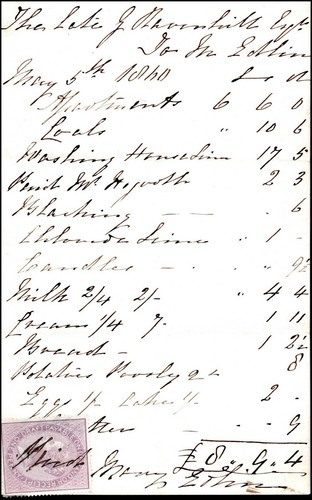 The Late J Ravenhill Esqr
To M Edlin
May 5th 1860 £ s d
Apartments 6 6 0
Coals " 10 6
Washing House Linn 17 5
Paid Mr 2 3
Blacking — — . 6
Chloride Lime " 1 -
Candles - . " 9½
Milk 2/4 2/- " 4 4
Cream 1/4 7- 1 11
Bread - 1 2½
Potatoes Parsly 2d 8
Eggs 1/- Cake 1/- 2 -
9
£8 " 9 " 4
Mary Edlin